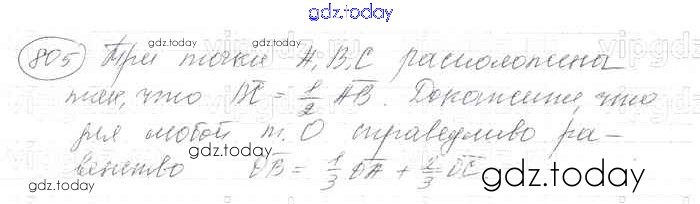 gdz.today
805 Три точки A, B, C расположены
так, что B͞C = 1/2 A͞B. Докажите, что
для любой т. O справедливо ра-
венство O͞B = 1/3 O͞A + 2/3 O͞C.
gdz.today
gdz.today
gdz.today
gdz.today
gdz.today
gdz.today